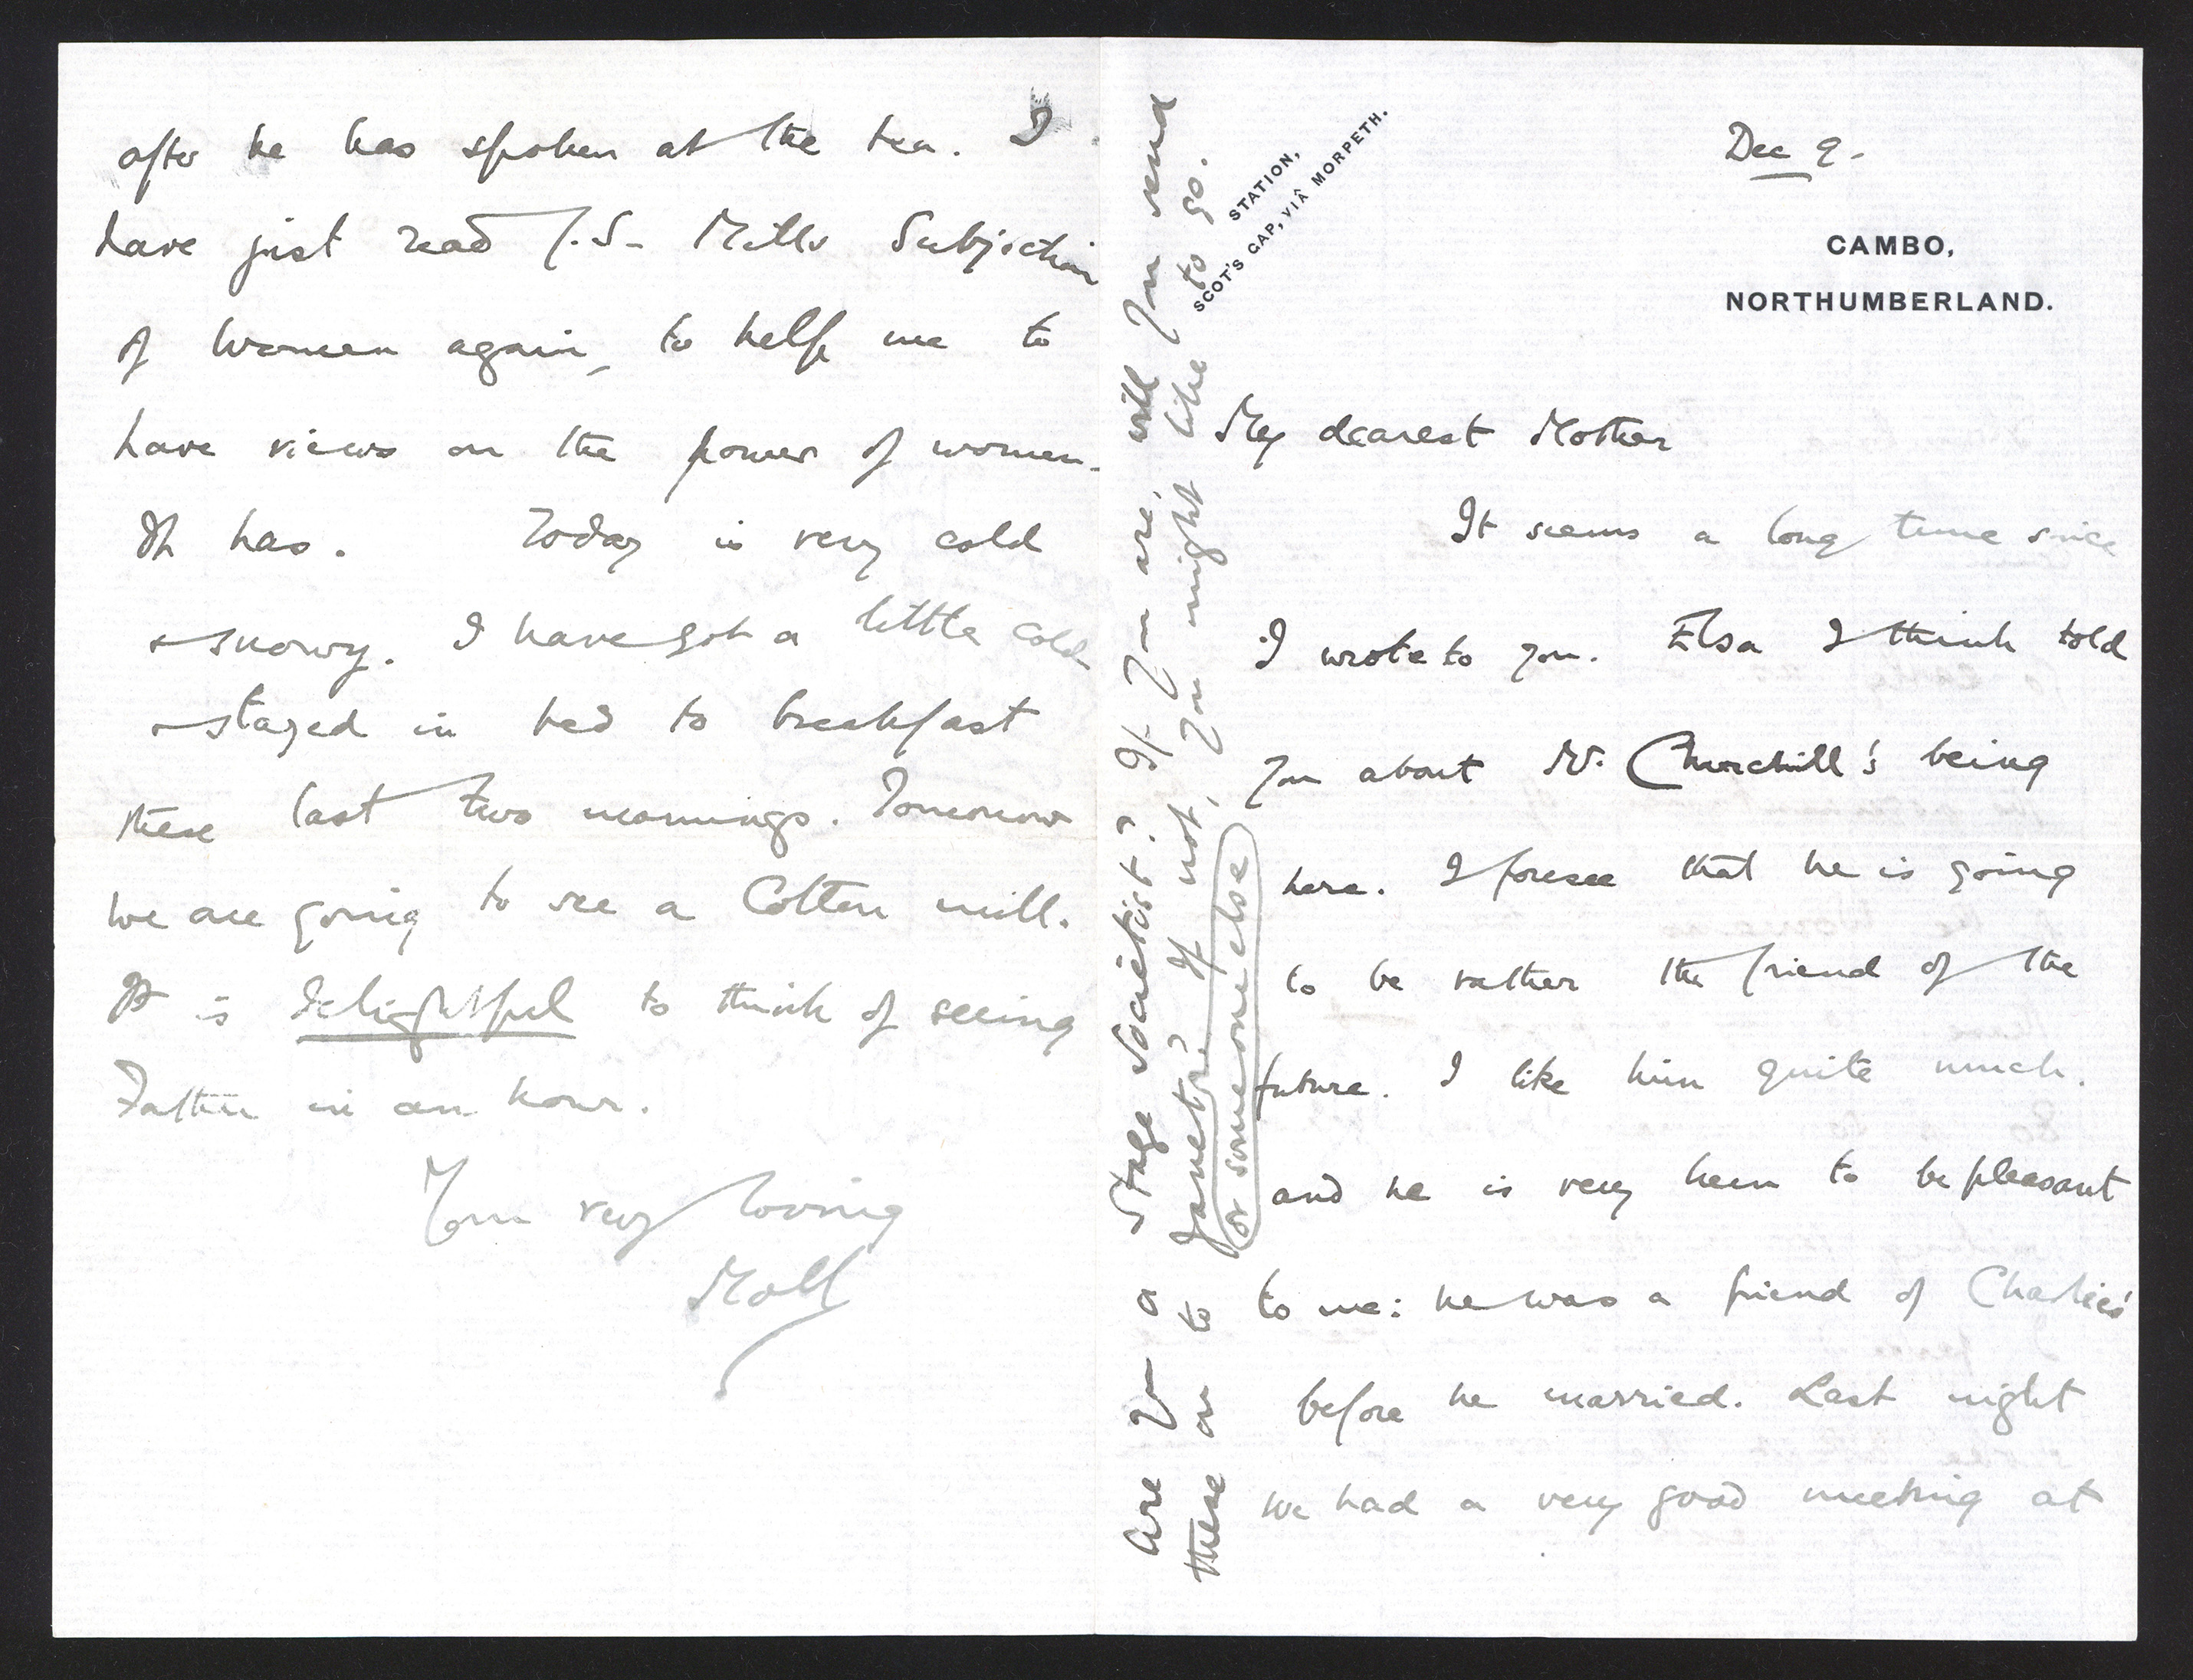 Dec 9.
STATION,
SCOT'S GAP, VIÂ MORPETH.
CAMBO,
NORTHUMBERLAND.
My dearest Mother
It seems a long time since
I wrote to you. Elsa I think told
you about Mr. Churchill's being
here. I foresee that he is going
to be rather the friend of the
future. I like him quite much.
and he is very keen to be pleasant
to me: he was a friend of Charlie's
before he married. Last night
we had a very good meeting at
after he has spoken at the tea. I
have just read J.S. Mills Subjection
of Women again, to help me to
have views on the power of women.
It has. Today is very cold
& snowy. I have got a little cold
& stayed in bed to breakfast
these last two mornings. Tomorrow
we are going to see a Cotton mill.
It is delightful to think of seeing
Father in an hour.
Your very loving
Moll
Are you a Stage Societist? If you are, will you send
these on to Janet? If not, you might like to go.
or someone else